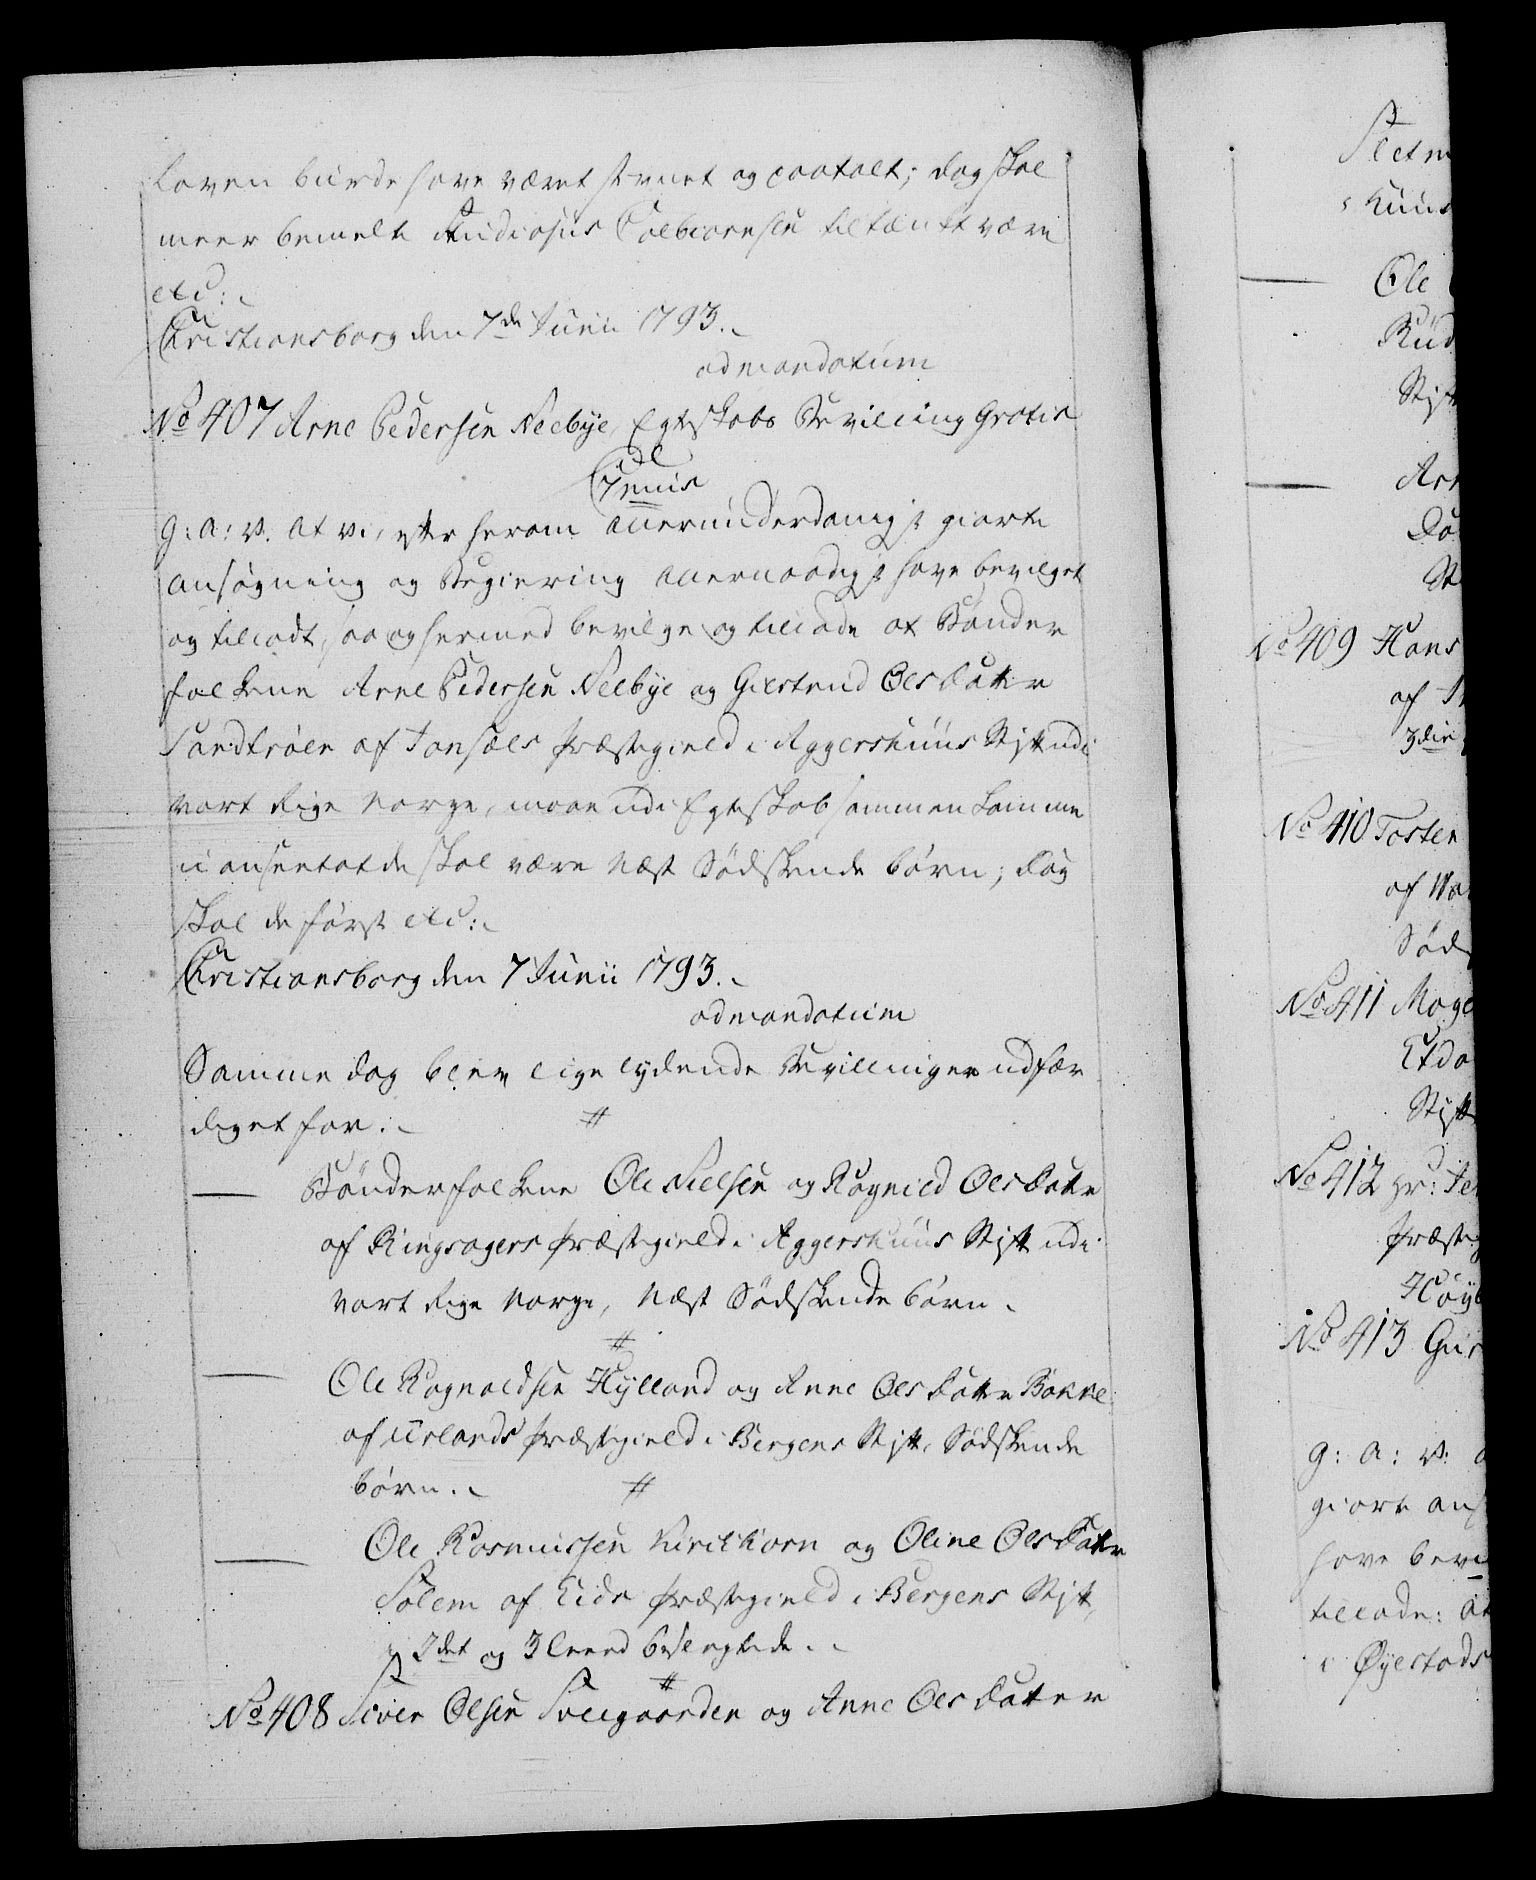 Loven burde have været stevnet og paatalt; dog skal
meer bemelte Studiosus Colbiørnsen tiltænkt være
etc:
Christiansborg den 7de Junii 1793.
ad mandatum
No 407 Arne Pedersen Neebye, Egteskabs Bevilling Gratis
C 7mus
G: A: V. At vi, efter herom allerunderdanigst giorte
ansøgning og Begiering allernaadigst have bevilget
og tilladt, saa og hermed bevilge og tillade at Bønder
folkene Arne Pedersen Neebye og Giertrud Olsdatter
Sandtrøen af Tønsets Præstegield i Aggershuus Stift udi
vort Rige Norge, maae udi Egteskab sammenkomme
uanseet at de skal være Næst Sødskende børn; dog
skal de først etc:
Christiansborg den 7 Junii 1793.
ad mandatum
Samme dag blev lige lydende Bevillinger udfær
diget for:
#
Bønderfolkene Ole Nielsen og Ragnild Olsdatter
af Ringsagers Præstegield i Aggershuus Stift udi
vort Rige Norge, Næst Sødskende børn.
#
Ole Ragnaldsen Hylland og Anne Olsdatter Bakke
af Urlands Præstegield i Bergens Stift, Sødskende
børn.
#
Ole Rasmussen Kirkhorn og Oline Olsdatter
Solem af Eids Præstegield i Bergens Stift,
i 2det og 3 Leed beslegtede.
#
No 408 Siver Olsen Sveegaarden og Anne Olsdatter
Huus
Ole
Rud
Stift
No 409 Hans
af
3die
No 410 Tosten
af
Søds
No 411 Moge
Stift
No 412 Hr: Je
Præsteg
Høyb
No 413
G: A: V.
giorte ans
have bevi
tillade: at
i Øyestads